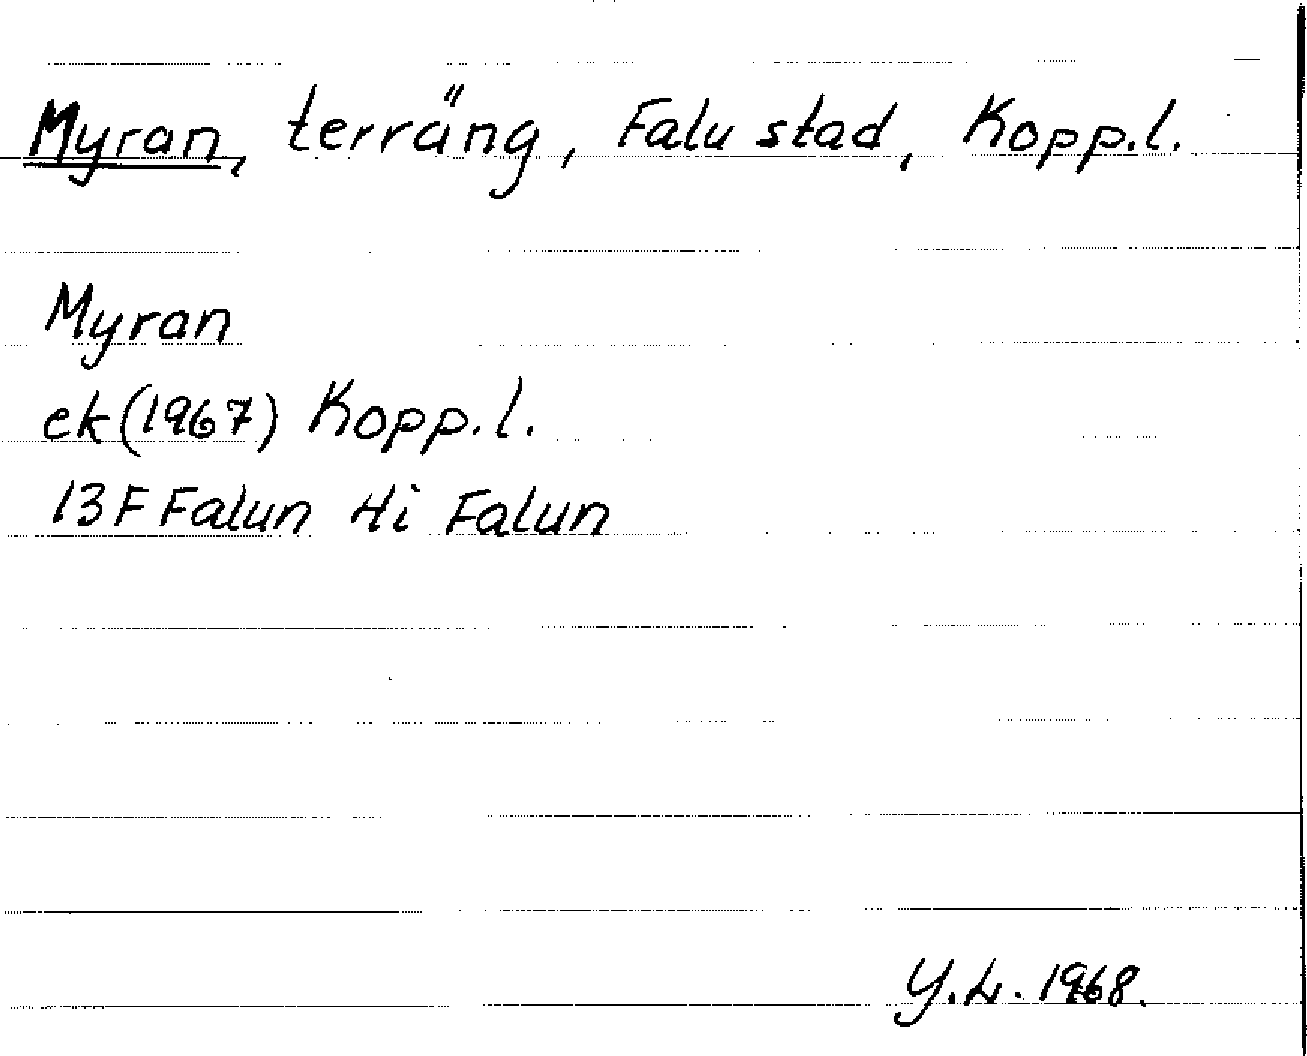 Myran, terräng, Falu stad, Kopp.l.
Myran
ek(1967) Kopp.l.
13F Falun 4i Falun
Y.L. 1968.